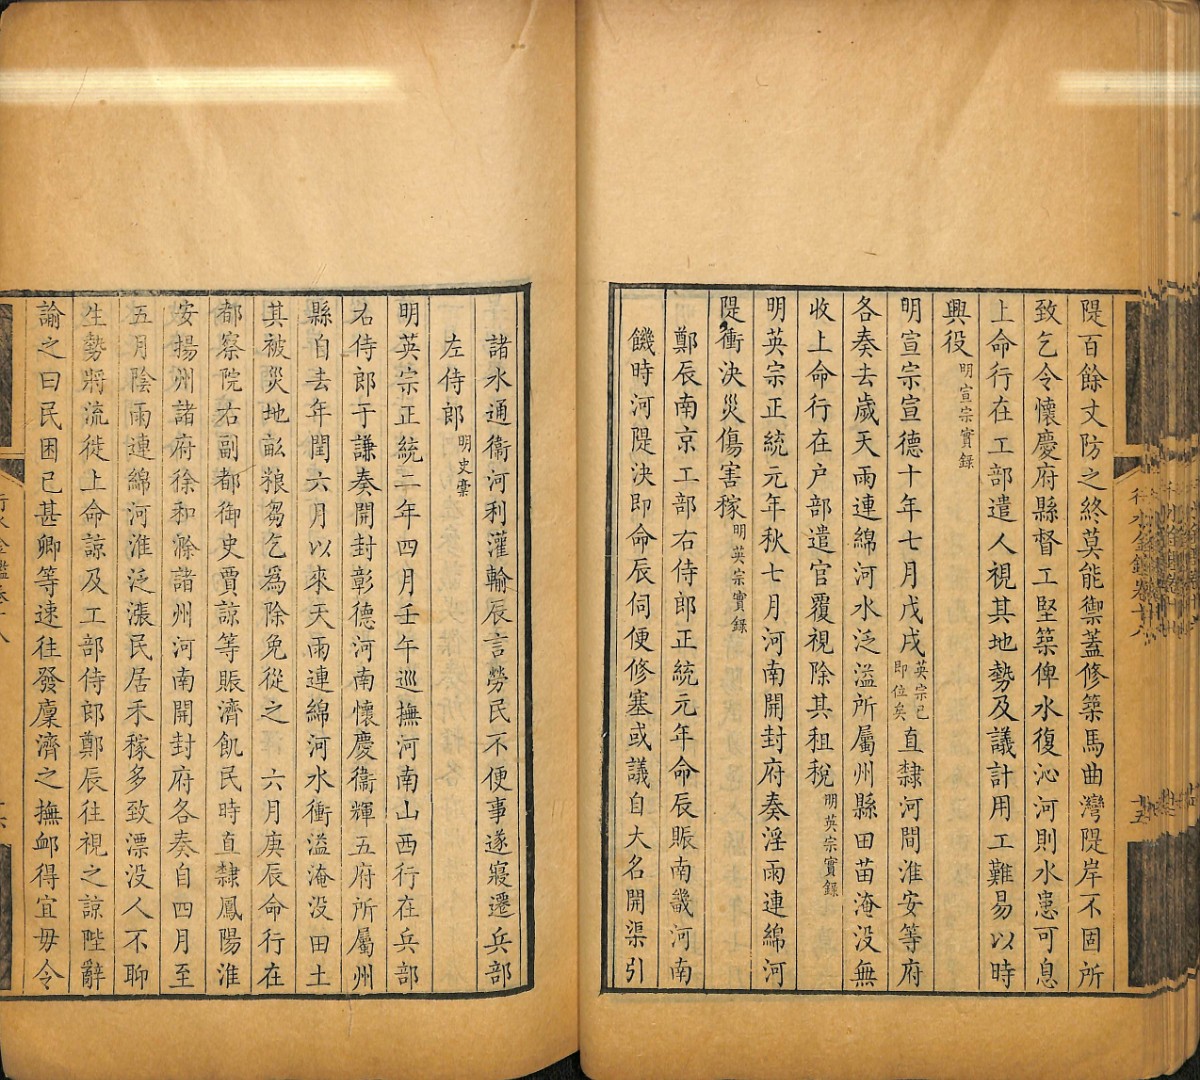 隄百餘丈防之終莫能禦蓋修築馬曲灣隄岸不固所
致乞令懷慶府縣督工堅築俾水復沁河則水患可息
上命行在工部遣人視其地勢及議計用工難易以時
興役明宣宗實録
明宣宗宣德十年七月戊戌英宗已即位矣直隸河間淮安等府
各奏去歲天雨連綿河水泛溢所屬州縣田苗淹没無
收上命行在户部遣官覆視除其租稅明英宗實録
明英宗正統元年秋七月河南開封府奏淫雨連綿河
隄衝決災傷害稼明英宗實録
鄭辰南京工部右侍郎正統元年命辰賑南畿河南
饑時河隄決即命辰伺便修塞或議自大名開渠引
行水金鑑卷十八
十五
諸水通衞河利灌輸辰言勞民不便事遂寢遷兵部
左侍郎明史稾
明英宗正統二年四月壬午巡撫河南山西行在兵部
右侍郎于謙奏開封彰德河南懷慶衞輝五府所屬州
縣自去年閏六月以來天雨連綿河水衝溢淹没田土
其被災地畝粮芻乞爲除免從之 六月庚辰命行在
都察院右副都御史賈諒等賑濟飢民時直隸鳳陽淮
安揚州諸府徐和滁諸州河南開封府各奏自四月至
五月陰雨連綿河淮泛漲民居禾稼多致漂没人不聊
生勢將流徙上命諒及工部侍郎鄭辰往視之諒陛辭
諭之曰民困已甚卿等速往發廩濟之撫衈得宜毋令
行水金鑑卷十八